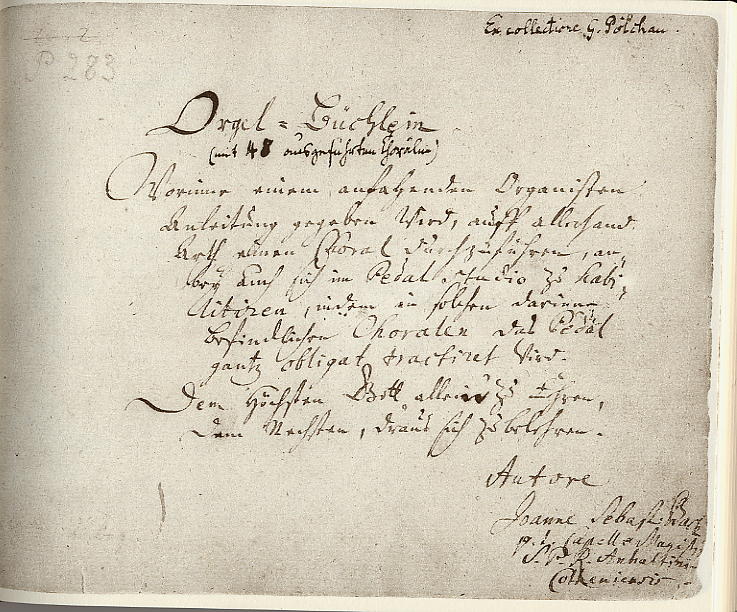 Ex collectione G. Pölchau.
P 283
Orgel=Büchlein
(mit 48 ausgeführten Chorälen)
Worinne einem anfahenden Organisten
Anleitung gegeben wird, auff allerhand
Arth einen Choral durchzuführen, an-
bey auch sich im Pedal studio zu habi-
litiren, indem in solchen darinne
befindlichen Choralen das Pedal
gantz obligat tractiret wird.
Dem Höchsten Gott allein zu Ehren,
Dem Nechsten, draus sich zu belehren.
Autore
Joanne Sebast: Bach
p. t. Capellae Magistro
S. P. R. Anhaltini-
Cotheniensis.